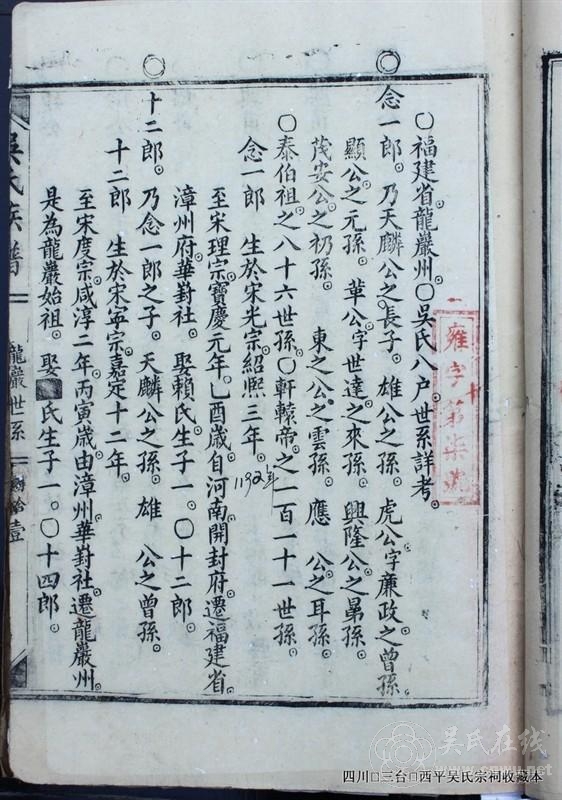 ○福建省龍巖州○吳氏八户世系詳考。
○念一郎。乃天麟公之長子。雄公之孫。虎公字廉政之曾孫。
顯公之元孫。草公字世達之來孫。興隆公之晜孫。
茂安公之礽孫。東之公之雲孫。應公之耳孫。
○泰伯祖之八十六世孫。○軒轅帝之一百一十一世孫。
念一郎 生於宋光宗紹熙三年。1192年
至宋理宗寶慶元年。乙酉歲。自河南開封府遷福建省
漳州府華葑社。娶賴氏生子一。○十二郎。
○十二郎。乃念一郎之子。天麟公之孫。雄 公之曾孫。
十二郎 生於宋寧宗嘉定十二年。
至宋度宗咸淳二年。丙寅歲。由漳州華葑社。遷龍巖州。
是為龍巖始祖。娶 氏生子一。○十四郎。
吳氏族譜 龍巖世系 壹
雍字第柒號
十
吳氏在线
.cnww.net
四川□三台□西平吴氏宗祠收藏本